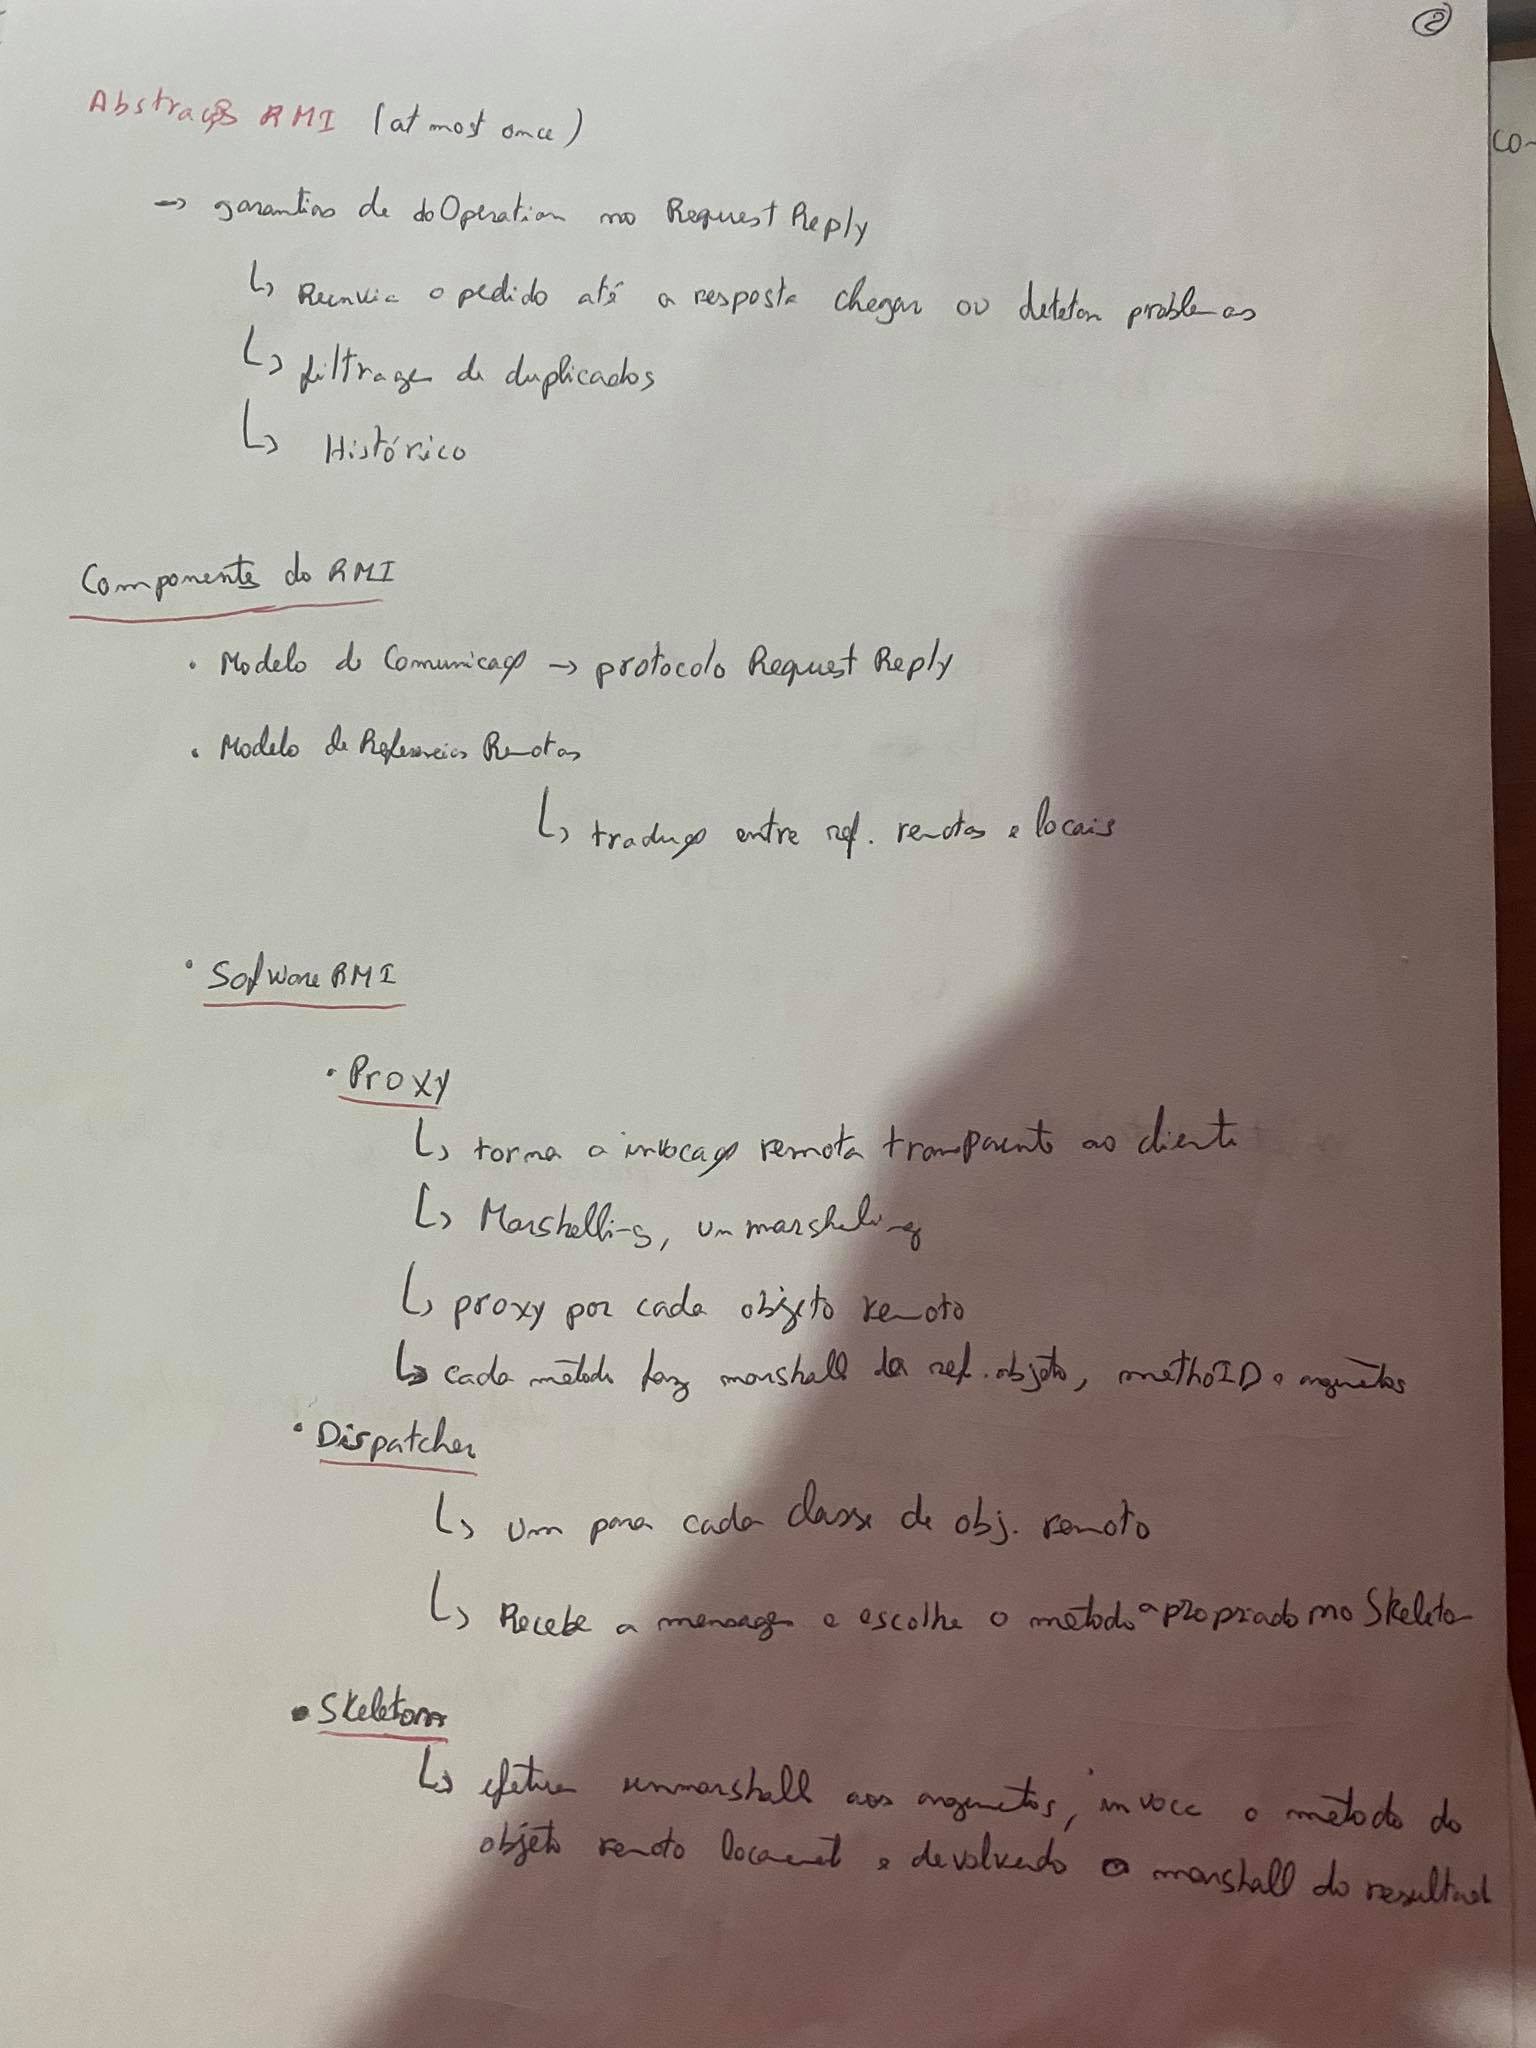 ②
Abstração RMI (at most once)
CO
→ garantias de doOperation no Request Reply
↳ Reenvia o pedido até a resposta chegar ou detetar problemas
↳ filtragem de duplicados
↳ Histórico
Componentes do RMI
• Modelo de Comunicação → protocolo Request Reply
• Modelo de Referencias Remotas
↳ tradução entre ref. remotas e locais
• Sofware RMI
• Proxy
↳ torna a invocação remota transparente ao cliente
↳ Marshelling, unmarsheling
↳ proxy por cada objeto remoto
↳ cada método faz marshall da ref. objeto, methoID e argumentos
• Dispatcher
↳ um para cada classe de obj. remoto
↳ Recebe a mensagem e escolhe o método apropriado no Skeleton
• Skeleton
↳ efetua unmarshall aos argumentos, invoca o método do
objeto remoto localmente e devolvendo o marshall do resultado